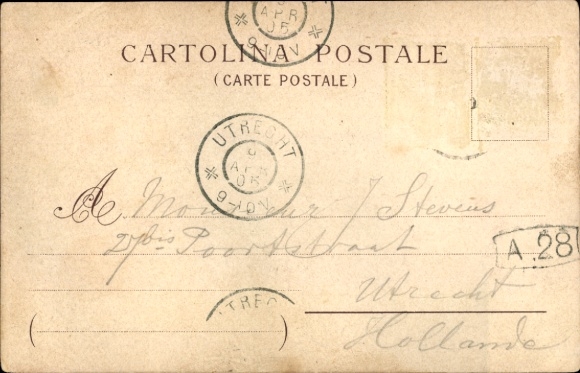 APR
05
9-10V
CARTOLINA POSTALE
(CARTE POSTALE)
UTRECHT
APR
05
9-10V
A Monsieur J Stevens
27bis Poortstraat
A.28
Utrecht
UTREC
Hollande